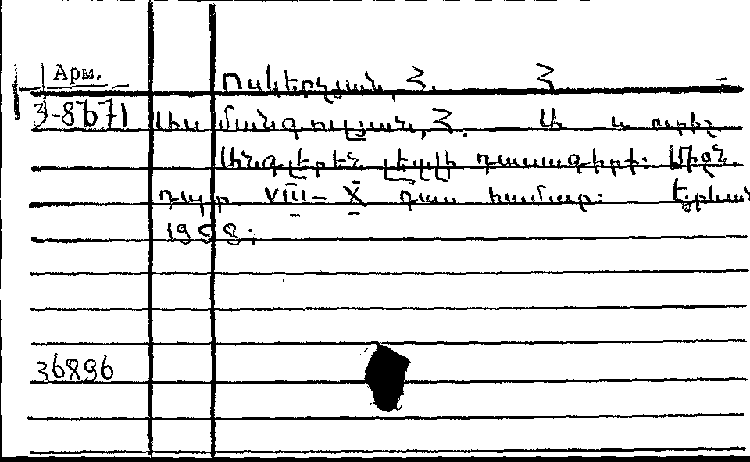 Арм. Ոսկերչյան, Հ. Հ.
3-8671 Տես Մանգուլյան, Հ. Ա. և ուրիշ
Անգլերեն լեզվի դասագիրք: Միջն.
դպր. VIII–X դաս. համար: Երևան
1958:
36896